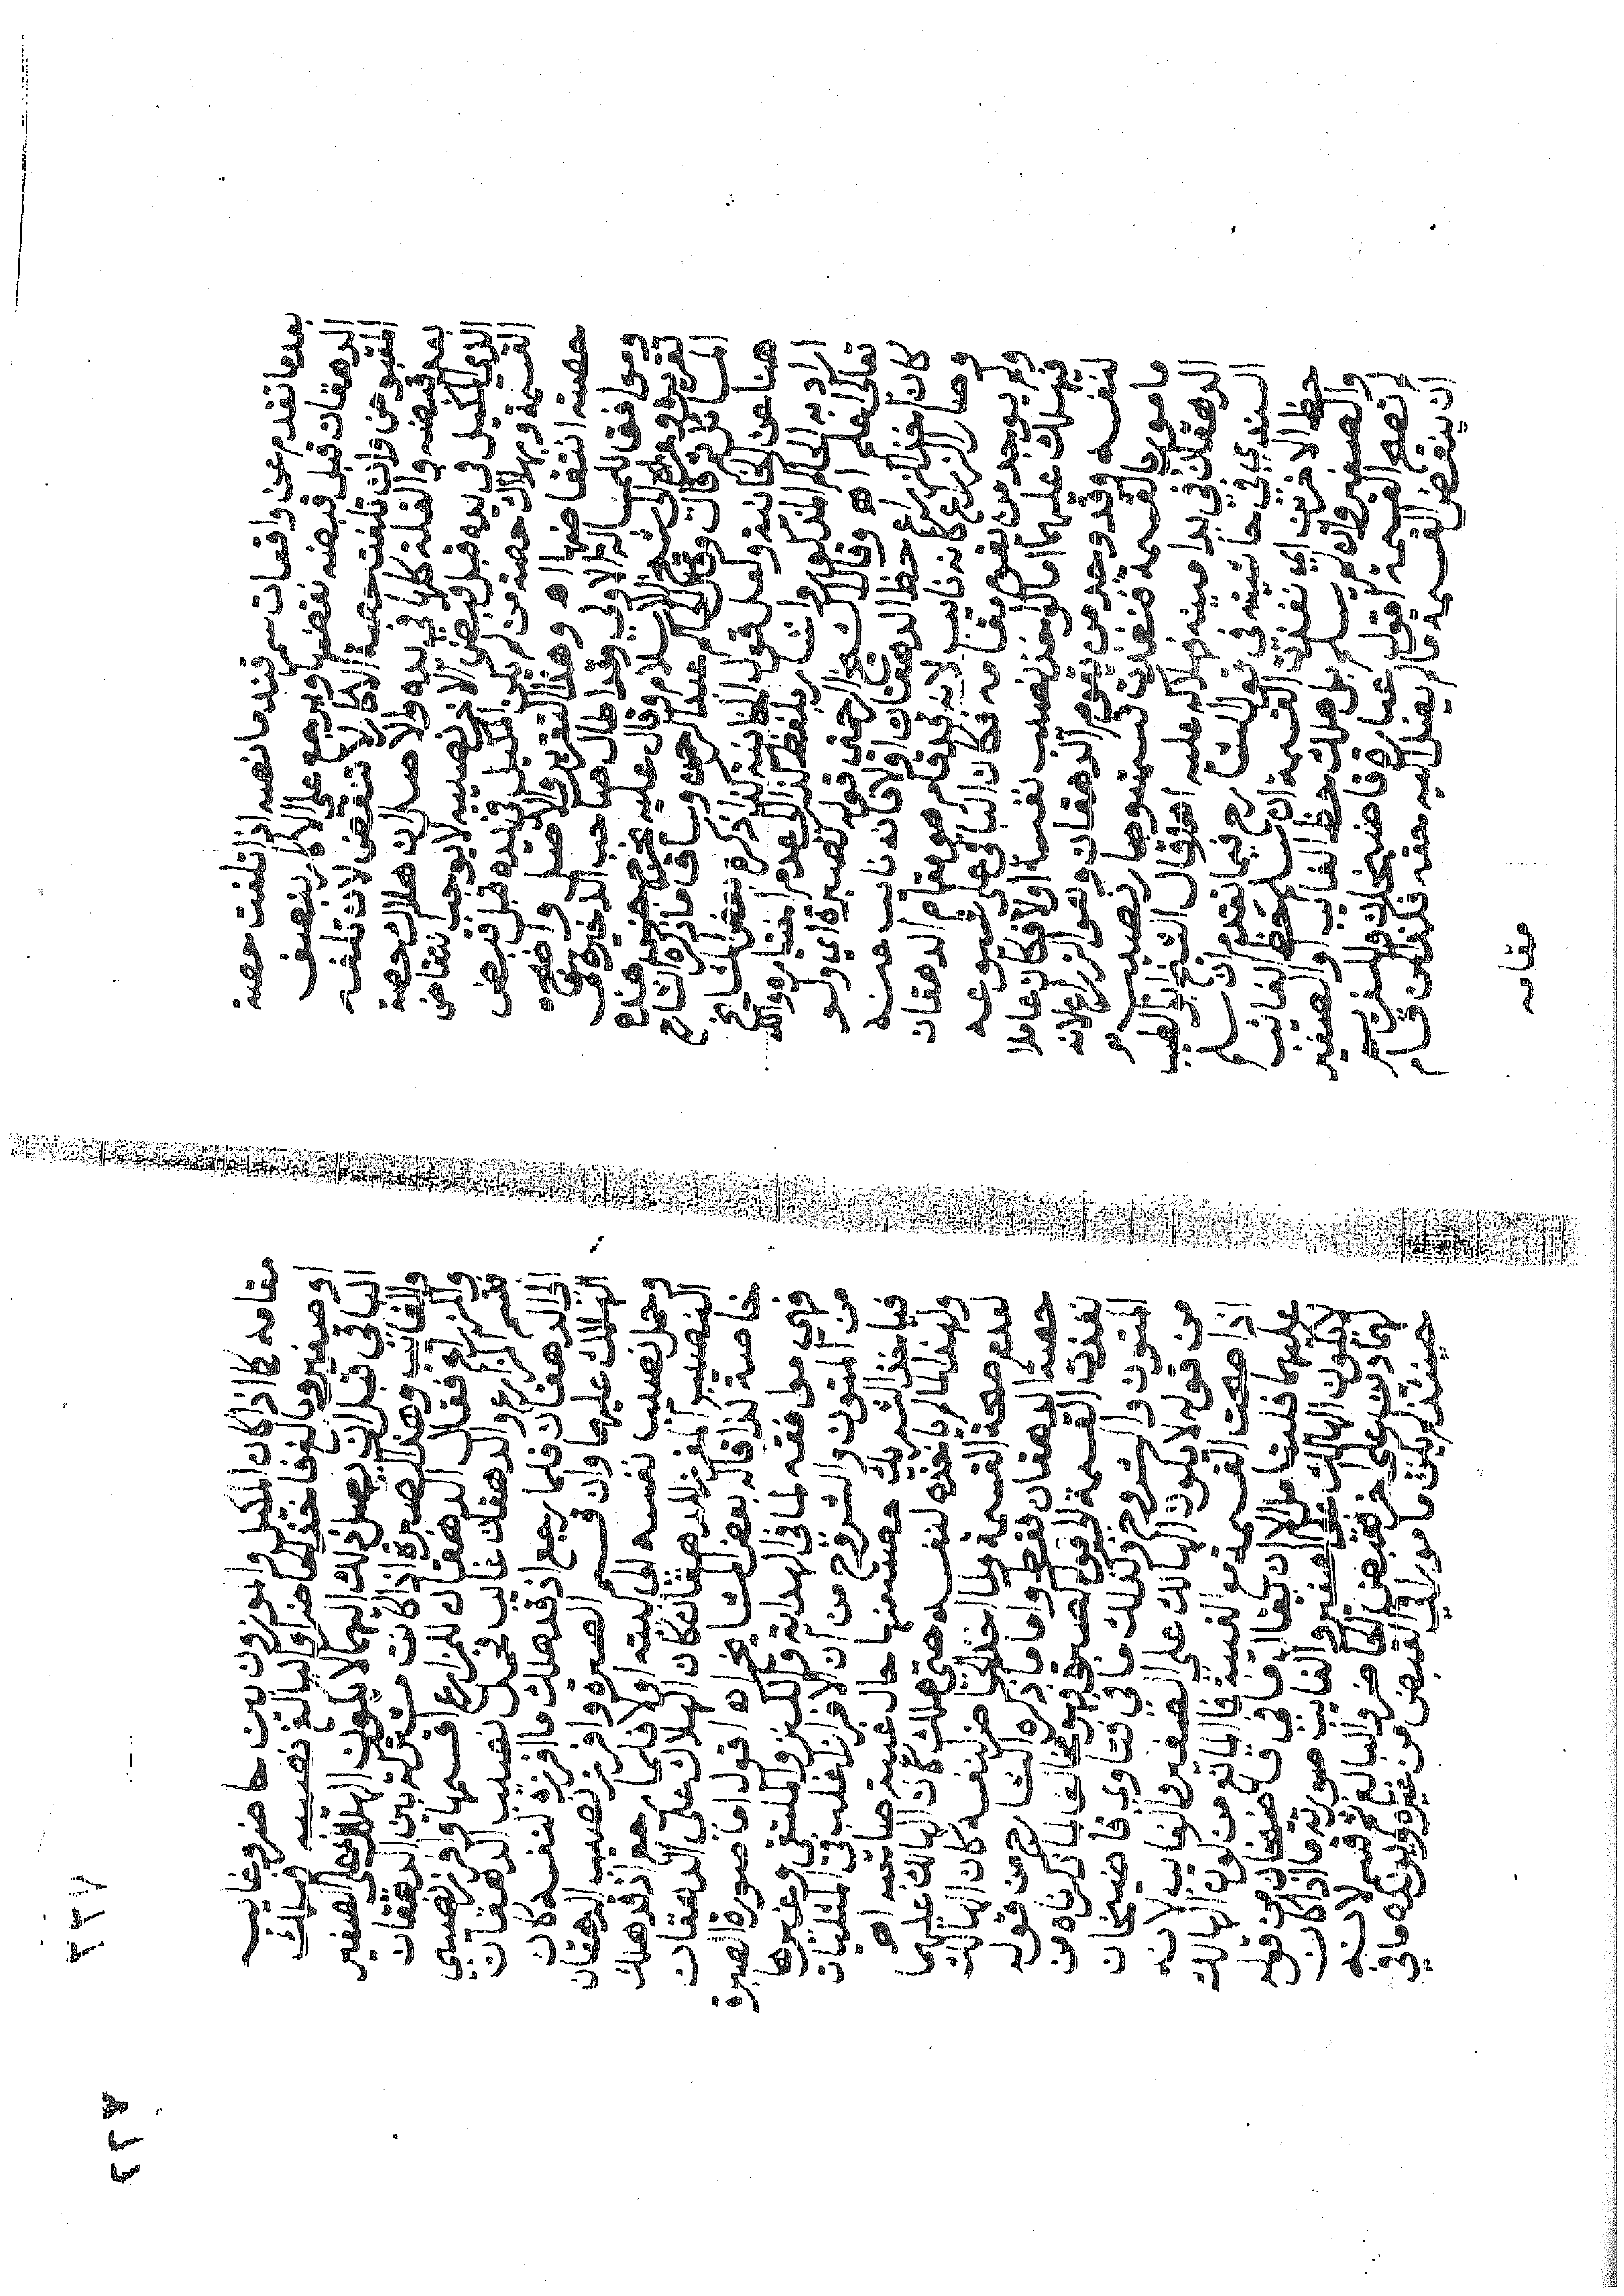 بعدما تقدم عن واقعات سمرقند ما نصه اذا تلفت حصة
الدهقان قبل قبضه نقضها ويرجع على الاكار بنصف
المقبوض وان تلفت حصة الاكار لا تنقض لان تلفه
بعد قبضه والغلة كلها في يده والاصل ان هلاك حصة
الذي المكيل في يده قبل قبض الاخر نصيبه لا يوجب انتقاض
القسمة وبهلاك حصة من لم يكن المكيل في يده قبل قبض
حصته انتقاضها اه وهذا التقرير والاصل واضح
وموافق للمسالة الاولى وقد اطال صاحب الذخيرة في
تقريره وعزاه الى شيخ الاسلام وقال عليه تخرج جنس هذه
المسائل ثم قال وقال الحاكم عبد الرحمن وساق ما ذكره الشارح
هنا عن الخانية ولعل قول الخانية كذا ذكر بعض المشايخ
اراد به الحاكم المذكور واشار بلفظ كذا الى عدم اختياره والله
تعالى اعلم اه وقال الشيخ الرحمتي قوله لصبرة اي ولو
كان اخذ الزراع حظ الدهقان اولا فانه نايب عنه
وصار الزراع كانه نايب لانه قد قام هو مقام الدهقان
ولم يوجد من يقوم مقامه فكان الباقي على شيوعه
فيهلك عليهما اما لو اخذ نصيب نفسه اولا فكان عاملا
لنفسه وقد وجد من يقوم الدهقان وهو الزراع لانه
مامور بالقسمة فنفذت قسمته وصار نصيب
الدهقان في يد امينه فهلاكه عليه اه وقال الشيخ ابو الطيب
السندي في حاشيته في قول الشارح فيما تقدم ان سلم
حظ الاخرين اي نفذت القسمة ان سلم حظ الغايب
والصغير وان لم يسلم بل هلك حظ الغايب او الصغير
لم تصح القسمة اقول عبارة قاضيخان وللعزيز
ان ينقض القسمة ما لم يصل اليه حقه فكذلك قسم
مقامه
مقامه كما اذا كان المكيل والموزون بين حاضر وغايب
او صغير وبالغ فاخذ الحاضر او البالغ نصيبه فهلك
الباقي قبل ان يصل ذلك اليهما لا يكون الهلاك على الصغير
والغايب وهذا الصبرة اذا كانت مشتركة بين الدهقان
والمزارع فقال الدهقان للمزارع اقسمها وافرز نصيبي
فقسم المزارع والدهقان غايب فحمل نصيب الدهقان
الى الدهقان فلما رجع اذ قد هلك ما افرزه لنفسه كان
الهلاك عليهما وان قسم الصبرة وافرز نصيب الدهقان
وحمل نصيب نفسه الى بيته اولا فلما رجع اذ قد هلك
النصيب المفرز للدهقان كان الهلاك على الدهقان
خاصة كذا قاله بعض المشايخ اه اقول اما صورة الصبرة
فهي موافقة لما في الهداية والكنز والملتقى وغيرها
من المتون والشروح من ان الافراز غالب في المثليات
فياخذ الشريك حصته منها حال غيبة صاحبه اه
ولهذا لما لم ياخذه لنفسه حتى هلك كان الهالك عليهما
لعدم صحة القسمة ولما اخذ الحاضر لنفسه كان الهالك
حصة الدهقان فقط واما ما ذكره الشارح من قوله
نفذت القسمة لو قول لصبرة يخالف لما ذكرناه من
المتون والشروح وكذلك ما في فتاوي قاضيخان
من قوله لا يكون الهالك على الصغير والغايب لانه
اذا صحت القسمة مع الغيبة فما المانع من كون الهالك
عليهما قلنا الا ان يقال ما في قاضيخان من قوله
لا يكون الهالك على الصغير والغايب صورته ما اذا كان
لم ياذن على اخر فقبض الحاضر والبالغ وقسم لانه
حينئذ لم يكن مامورا في القبض من غيره ويؤيده ما في